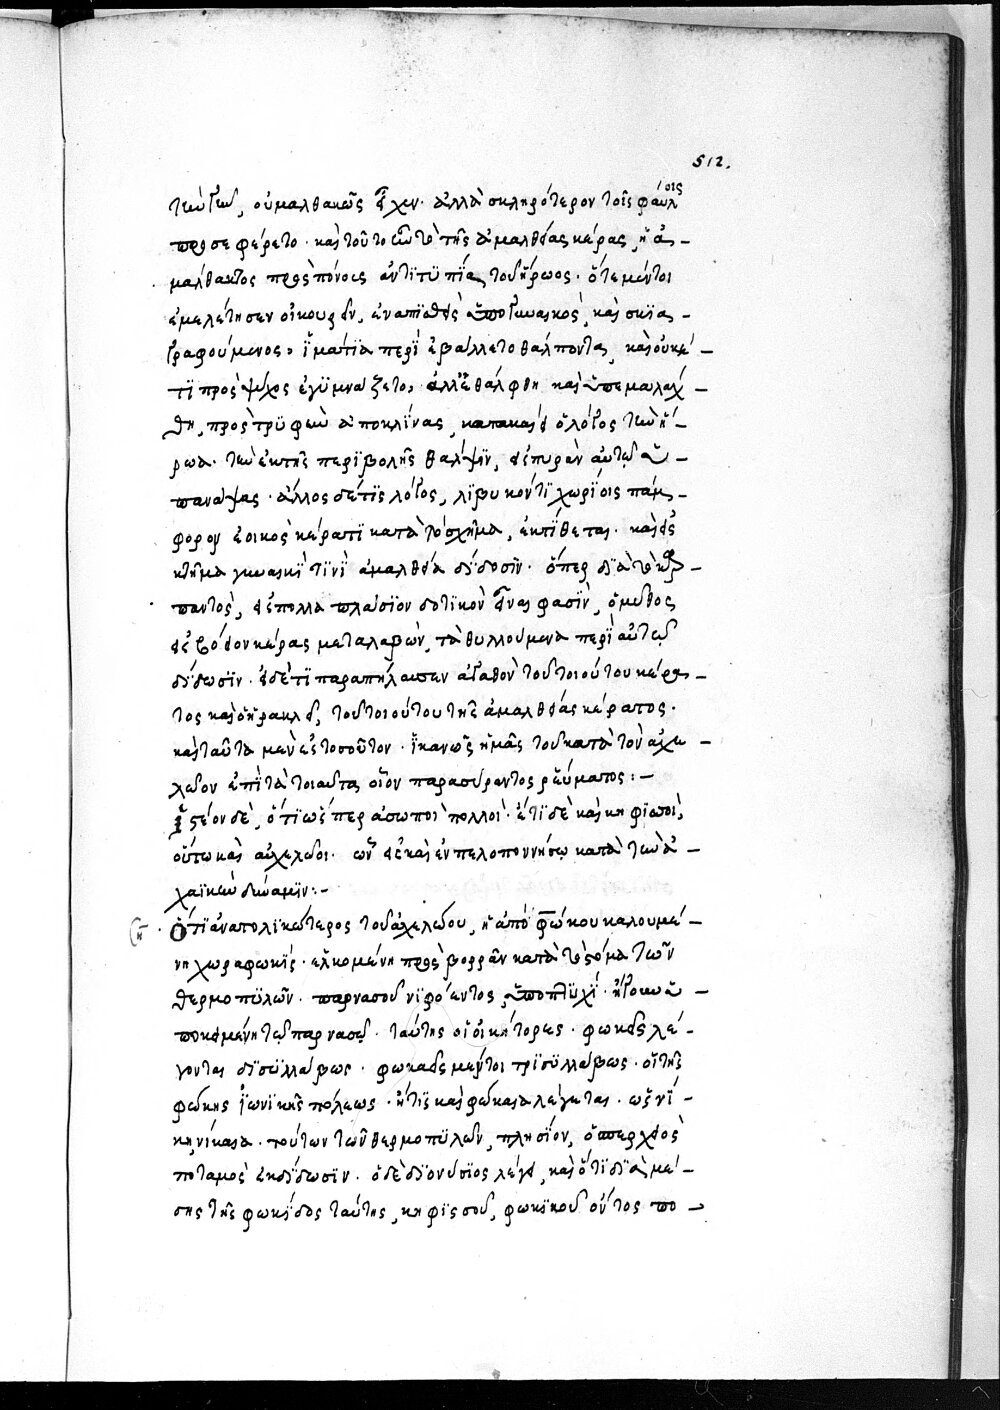 512.
τὴν γῆν, οὐ μαλθακῶς εἶχεν· ἀλλὰ σκληρότερον τοῖς φαύλοις
προσεφέρετο· καὶ τοῦτο ἦν τὸ τῆς ἀμαλθείας κέρας, ἡ ἀ-
μάλθακτος πρὸς πόνους ἀντιτυπία τοῦ ἥρωος· ὅτε μέντοι
ἐμελέτησεν οἰκουρεῖν, ἐναπειληθεὶς ὑπὸ γυναικὸς, καὶ σκια-
γραφούμενος, ἱμάτια περιεβάλλετο θάλποντα, καὶ οὐκέ-
τι πρὸς ψύχος ἐγυμνάζετο, ἀλλ' ἐθάλφθη καὶ ὑπεμαλάχ-
θη, πρὸς τρυφὴν ἀποκλίνας, κατακαίει ὁ λόγος τὸν ἥ-
ρωα· τὴν ἐκ τῆς περιβολῆς θάλψιν, εἰς πυρὰν αὐτῷ ὑ-
πανάψας· ἄλλος δέ τις λόγος, λιβυκόν τι χωρίον εἰς πάμ-
φορον ἐοικὸς κέρατι κατὰ τὸ σχῆμα, ἐκτίθεται· καὶ εἰς
κτῆμα γυναικί τινι ἀμαλθείᾳ δίδωσιν· ὅπερ διὰ τὸ καρ-
παντὸς, εἰς πολλαπλασίον δοτικὸν εἶναι φασὶν, ὁ μῦθος
εἰς βόειον κέρας μεταλαβὼν, τὰ θυλλούμενα περὶ αὐτῷ
δίδωσιν· εἰ δέ τι παραπήλαυσεν ἀγαθὸν τοῦ τοιούτου κέρα-
τος καὶ ὁ ἡρακλῆς, τοῦ τοιούτου τῆς ἀμαλθείας κέρατος·
καὶ ταῦτα μὲν ἐς τοσοῦτον· ἱκανῶς ἡμᾶς τοῦ κατὰ τὸν ἀχε-
λῷον ἐπὶ τὰ τοιαῦτα οἷον παρασύραντος ῥεύματος :-
ἰστέον δὲ, ὅτι ὥσπερ ἀσωποὶ πολλοὶ· ἔτι δὲ καὶ κηφισοὶ,
οὕτω καὶ ἀχελῷοι· ὧν εἷς καὶ ἐν πελοποννήσῳ κατὰ τὴν ἀ-
χαϊκὴν δύμην :-
ὅτι ἀνατολικώτερος τοῦ ἀχελῴου, ἡ ἀπὸ φώκου καλουμέ-
νη χώρα φωκίς· ἑλκομένη πρὸς βορρᾶν κατὰ τὸ στόμα τῶν
θερμοπυλῶν· παρνασοῦ νιφόεντος ὑπὸ πτυχὶ· ἤγουν ὑ-
ποκειμένη τῷ παρνασῷ· ταύτης οἱ οἰκήτορες· φωκεῖς λέ-
γονται δισυλλάβως· φωκαεῖς μέντοι τρισυλλάβως· οἱ τῆς
φώκης ἰωνικῆς πόλεως· ἥτις καὶ φώκαια λέγεται· ὡς νί-
κη, νίκαια· τούτων τῶν θερμοπυλῶν, πλησίον, ὁ σπερχειὸς
ποταμὸς ἐκδίδωσιν· ὁ δὲ διονύσιος λέγει, καὶ ὅτι διὰ μέ-
σης τῆς φωκίδος ταύτης, κηφισσοῦ, φωκικοῦ ὄντος πο-